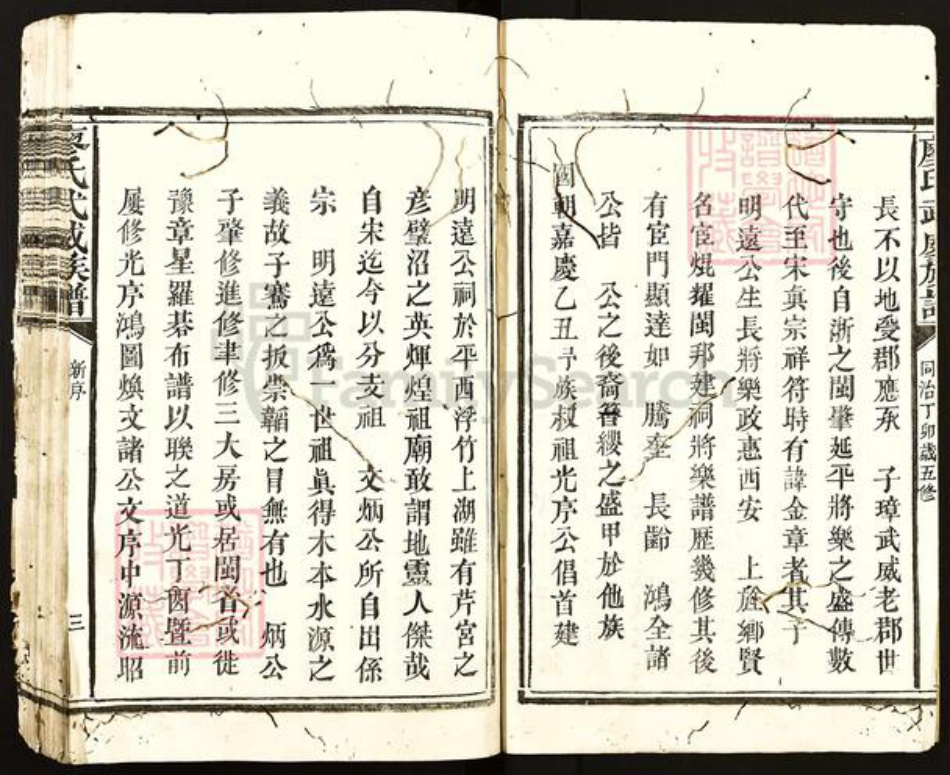 廖氏武威族譜
同治丁卯歲五修
長不以地受郡應承 子璋武威老郡世
守也後自浙之閩肇延平將樂之盛傳數
代至宋真宗祥符時有諱金章者其子
明遠公生長將樂政惠西安 上旌鄉賢
名宦焜耀閩邦建祠將樂譜歷幾修其後
有宦門顯達如 騰奎 長齡 鴻全諸
公皆 公之後裔簪纓之盛甲於他族
國朝嘉慶乙丑 族叔祖光序公倡首建
明遠公祠於平西浮竹上湖雖有芹宮之
彥璧沼之英輝煌祖廟敢謂地靈人傑哉
自宋迄今以分支祖 文炳公所自出係
宗 明遠公為一世祖眞得木本水源之
義故子騫之扳崇韜之冒無有也 炳公
子肇修進修聿修三大房或居閩省或徙
豫章星羅碁布譜以聯之道光丁酉暨前
屢修光序鴻圖煥文諸公文序中源流昭
廖氏武威族譜
新序
三
FamilySearch